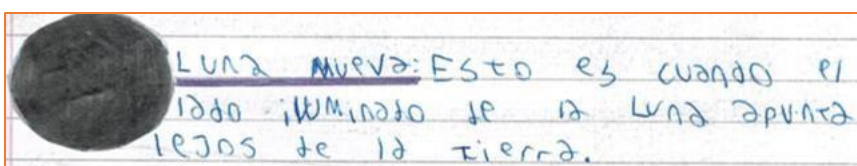 Luna Nueva: Esto es cuando el
lado iluminado de la Luna apunta
lejos de la tierra.